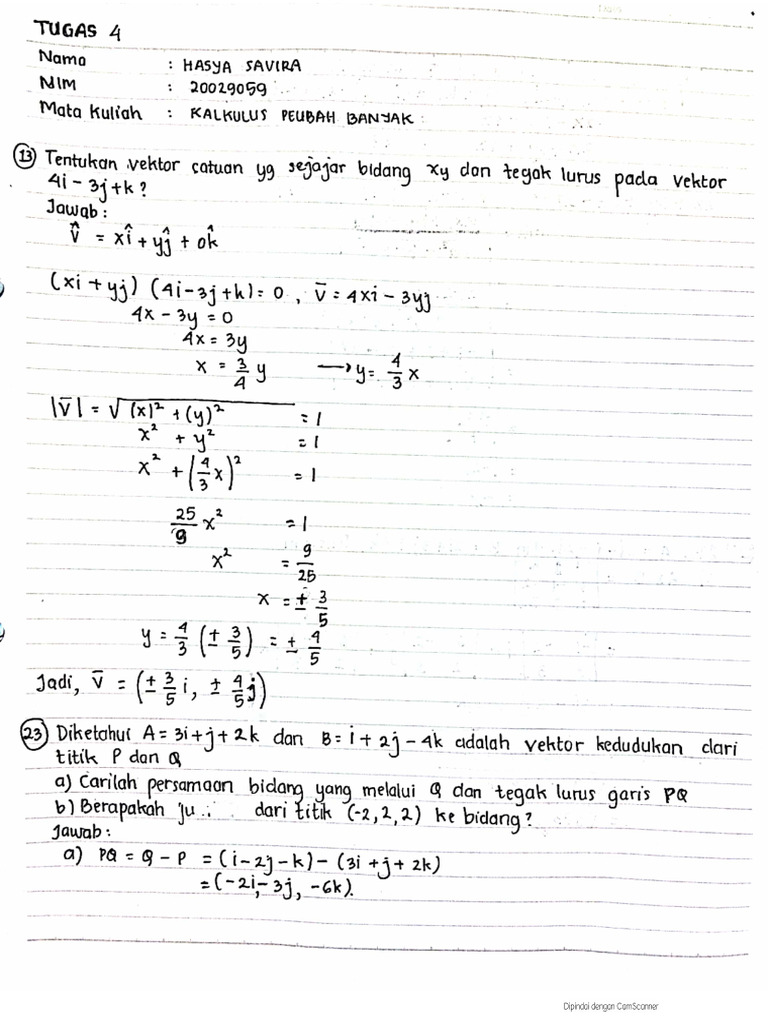 TUGAS 4
Nama : HASYA SAVIRA
NIM : 20029059
Mata Kuliah : KALKULUS PEUBAH BANYAK
(13) Tentukan vektor satuan yg sejajar bidang xy dan tegak lurus pada vektor
4i - 3j + k ?
Jawab :
v̂ = xî + yĵ + 0k̂
(xi + yj) (4i - 3j + k) = 0 , v̄ = 4xi - 3yj
4x - 3y = 0
4x = 3y
x = 3/4 y → y = 4/3 x
|v̄| = √(x)² + (y)² = 1
x² + y² = 1
x² + (4/3 x)² = 1
25/9 x² = 1
x² = 9/25
x = ± 3/5
y = 4/3 (± 3/5) = ± 4/5
Jadi, v̄ = (± 3/5 i, ± 4/5 j)
(23) Diketahui A = 3i + j + 2k dan B = i + 2j - 4k adalah vektor kedudukan dari
titik P dan Q
a) Carilah persamaan bidang yang melalui Q dan tegak lurus garis PQ
b) Berapakah dari titik (-2, 2, 2) ke bidang ?
Jawab :
a) PQ = Q - P = (i - 2j - k) - (3i + j + 2k)
= (-2i, -3j, -6k).
Dipindai dengan CamScanner